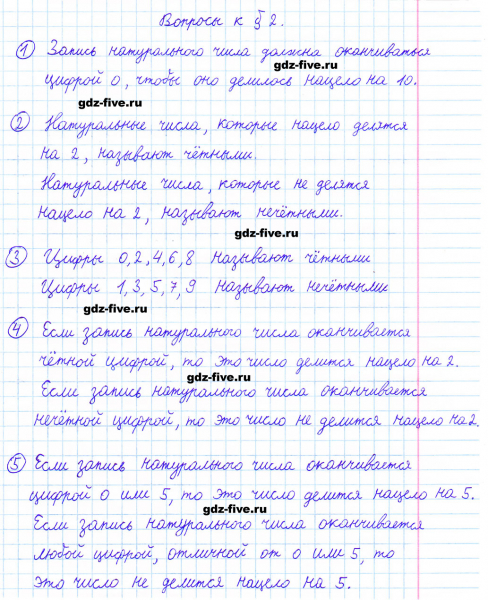 Вопросы к § 2.
① Запись натурального числа должна оканчиваться
gdz-five.ru
цифрой 0, чтобы оно делилось нацело на 10.
gdz-five.ru
② Натуральные числа, которые нацело делятся
на 2, называют чётными.
Натуральные числа, которые не делятся
нацело на 2, называют нечётными.
gdz-five.ru
③ Цифры 0, 2, 4, 6, 8 называют чётными
Цифры 1, 3, 5, 7, 9 называют нечётными
gdz-five.ru
④ Если запись натурального числа оканчивается
чётной цифрой, то это число делится нацело на 2.
gdz-five.ru
Если запись натурального числа оканчивается
нечётной цифрой, то это число не делится нацело на 2.
gdz-five.ru
⑤ Если запись натурального числа оканчивается
цифрой 0 или 5, то это число делится нацело на 5.
gdz-five.ru
Если запись натурального числа оканчивается
любой цифрой, отличной от 0 или 5, то
это число не делится нацело на 5.